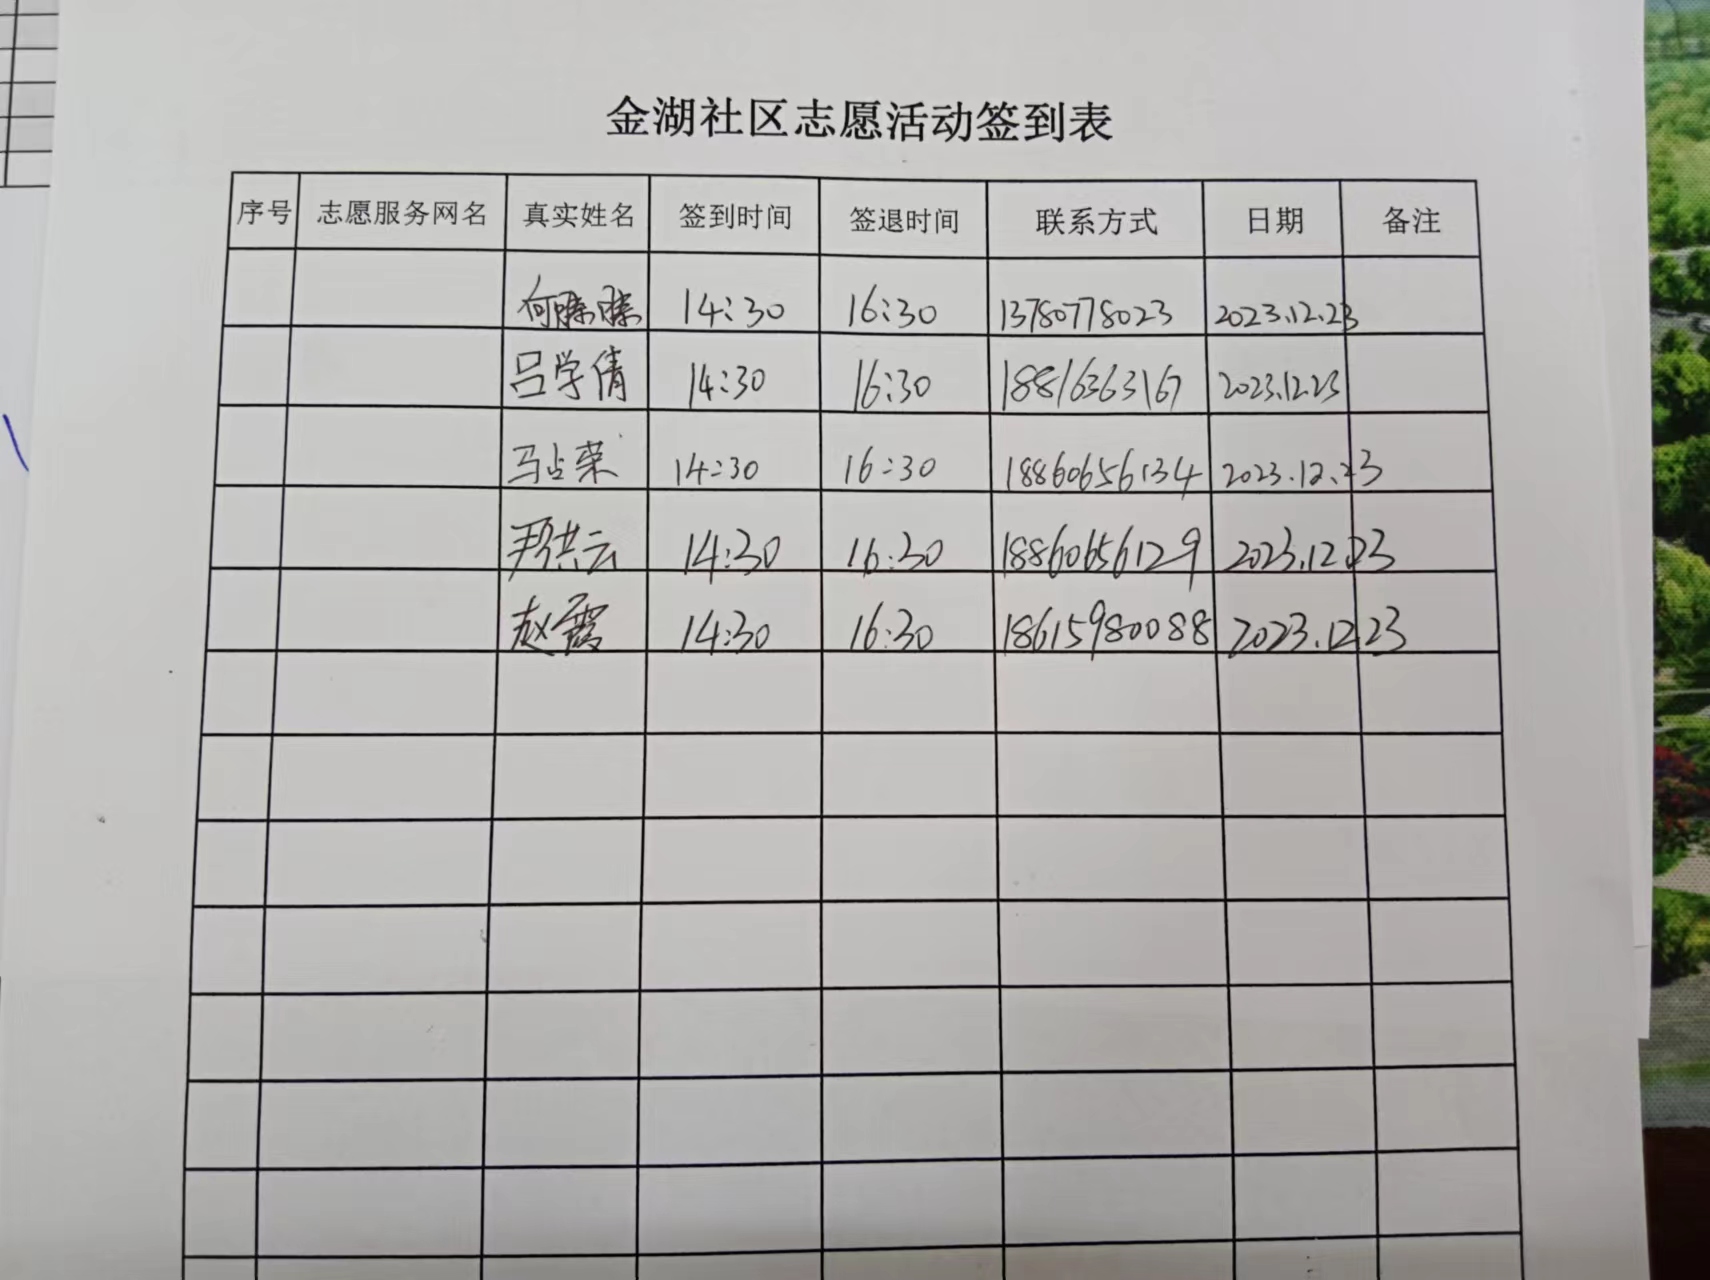 金湖社区志愿活动签到表
序号 志愿服务网名 真实姓名 签到时间 签退时间 联系方式 日期 备注
何 14:30 16:30 13780778023 2023.12.23
吕学倩 14:30 16:30 18816363167 2023.12.23
马占荣 14:30 16:30 18860656134 2023.12.23
洪云 14:30 16:30 18860656129 2023.12.23
赵霞 14:30 16:30 18615980088 2023.12.23